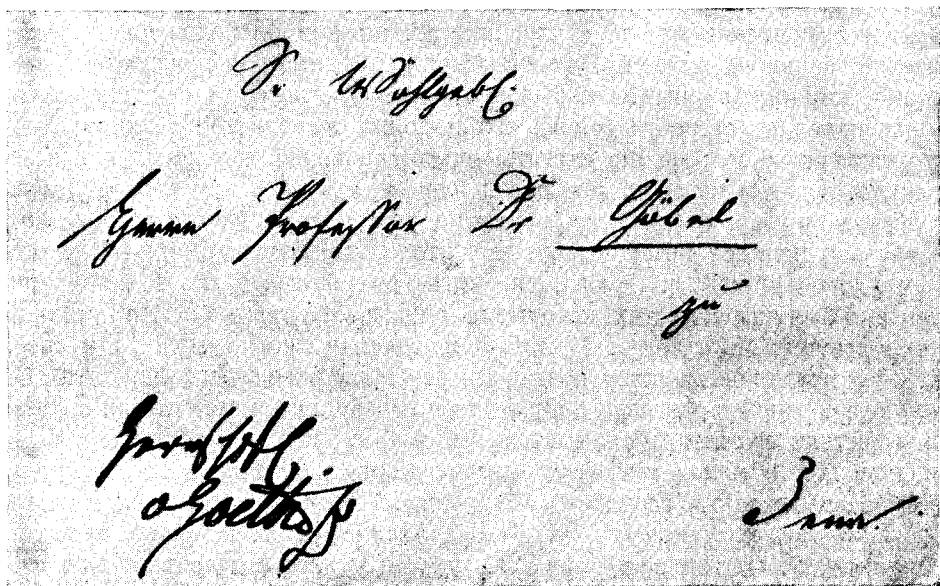 Sr. Wohlgebl.
Herrn Professor Dr Göbel
zu
Herrschftl.
vGoethe
Jena.